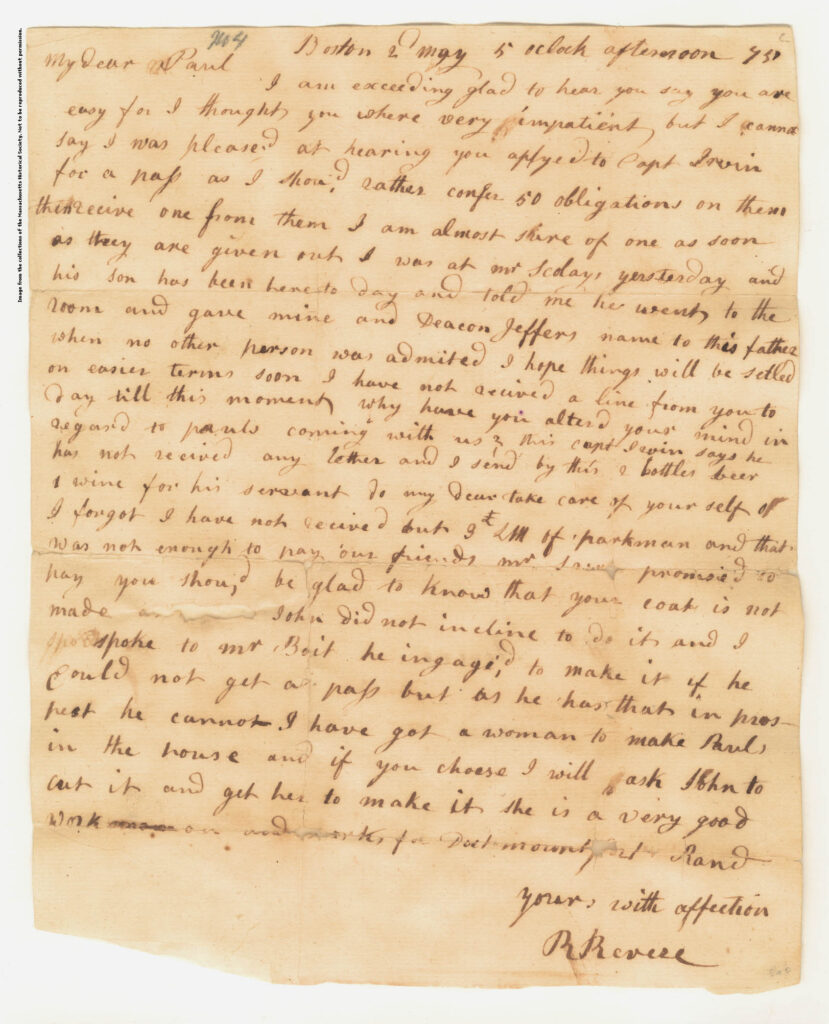 Image from the collections of the Massachusetts Historical Society. Not to be reproduced without permission.
No 4
Boston 2d may 5 oclock afternoon 75
My dear Paul
I am exceeding glad to hear you say you are
easy for I thought you where very impatient but I cannot
say I was pleased at hearing you aplyed to Capt Irvin
for a pass as I shou,d rather confer 50 obligations on them
then recive one from them I am almost shure of one as soon
as they are given out I was at mr Scolays yersterday and
his son has been here to day and told me he went to the
room and gave mine and Deacon Jeffers name to this father
when no other person was admited I hope things will be setled
on easier terms soon I have not recived a line from you to
day till this moment why have you alterd your mind in
regard to pauls coming with us? this capt Irvin says he
has not recived any letter and I send by this 2 bottles beer
1 wine for his servant do my dear take care of your self
I forgot I have not recived but 3 of parkman and that
was not enough to pay our friends mr promised to
pay you shou,d be glad to know that your coat is not
made John did not incline to do it and I
spoke to mr Boit he ingage,d to make it if he
Could not get a pass but as he has that in pros-
pect he cannot I have got a woman to make Pauls
in the house and if you choese I will ask John to
cut it and get her to make it she is a very good
work and works for Doct Rand
yours with affection
R Revere